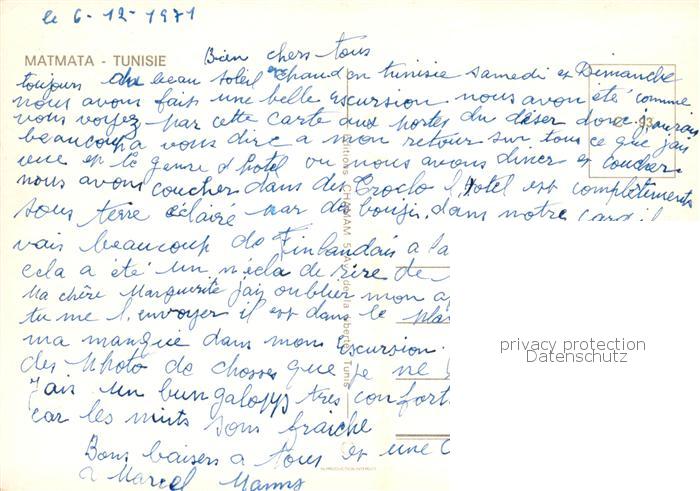 le 6-12-1971
MATMATA - TUNISIE
Bien chers tous
toujours du beau soleil chaud en tunisie samedi et Dimanche
nous avons fait une belle escursion nous avon été comme
vous voyez par cette carte aux portes du déser donc j'aurai
beaucoup a vous dire a mon retour sur tous ce que j'ais
vue et le genre d'hotel ou nous avons diner et coucher.
nous avons coucher dans des Troclo l'hotel est complètements
sous terre éclairé par des bougis. dans notre car il
vais beaucoup de Finlandais a la
cela a été un n'écla de rire de
Ma chère Marguerite j'ais oublier mon
tu me l'envoyer il est dans le
ma manquée dans mon Escursion.
des photo de chosses que je ne
J'ais un bungalops très confort
car les nuits sons fraiche
Bons baisers a tous et une
Marcel
Editions CHAMAM 5, Av. de la Liberté Tunis
REPRODUCTION INTERDITE
93
privacy protection
Datenschutz